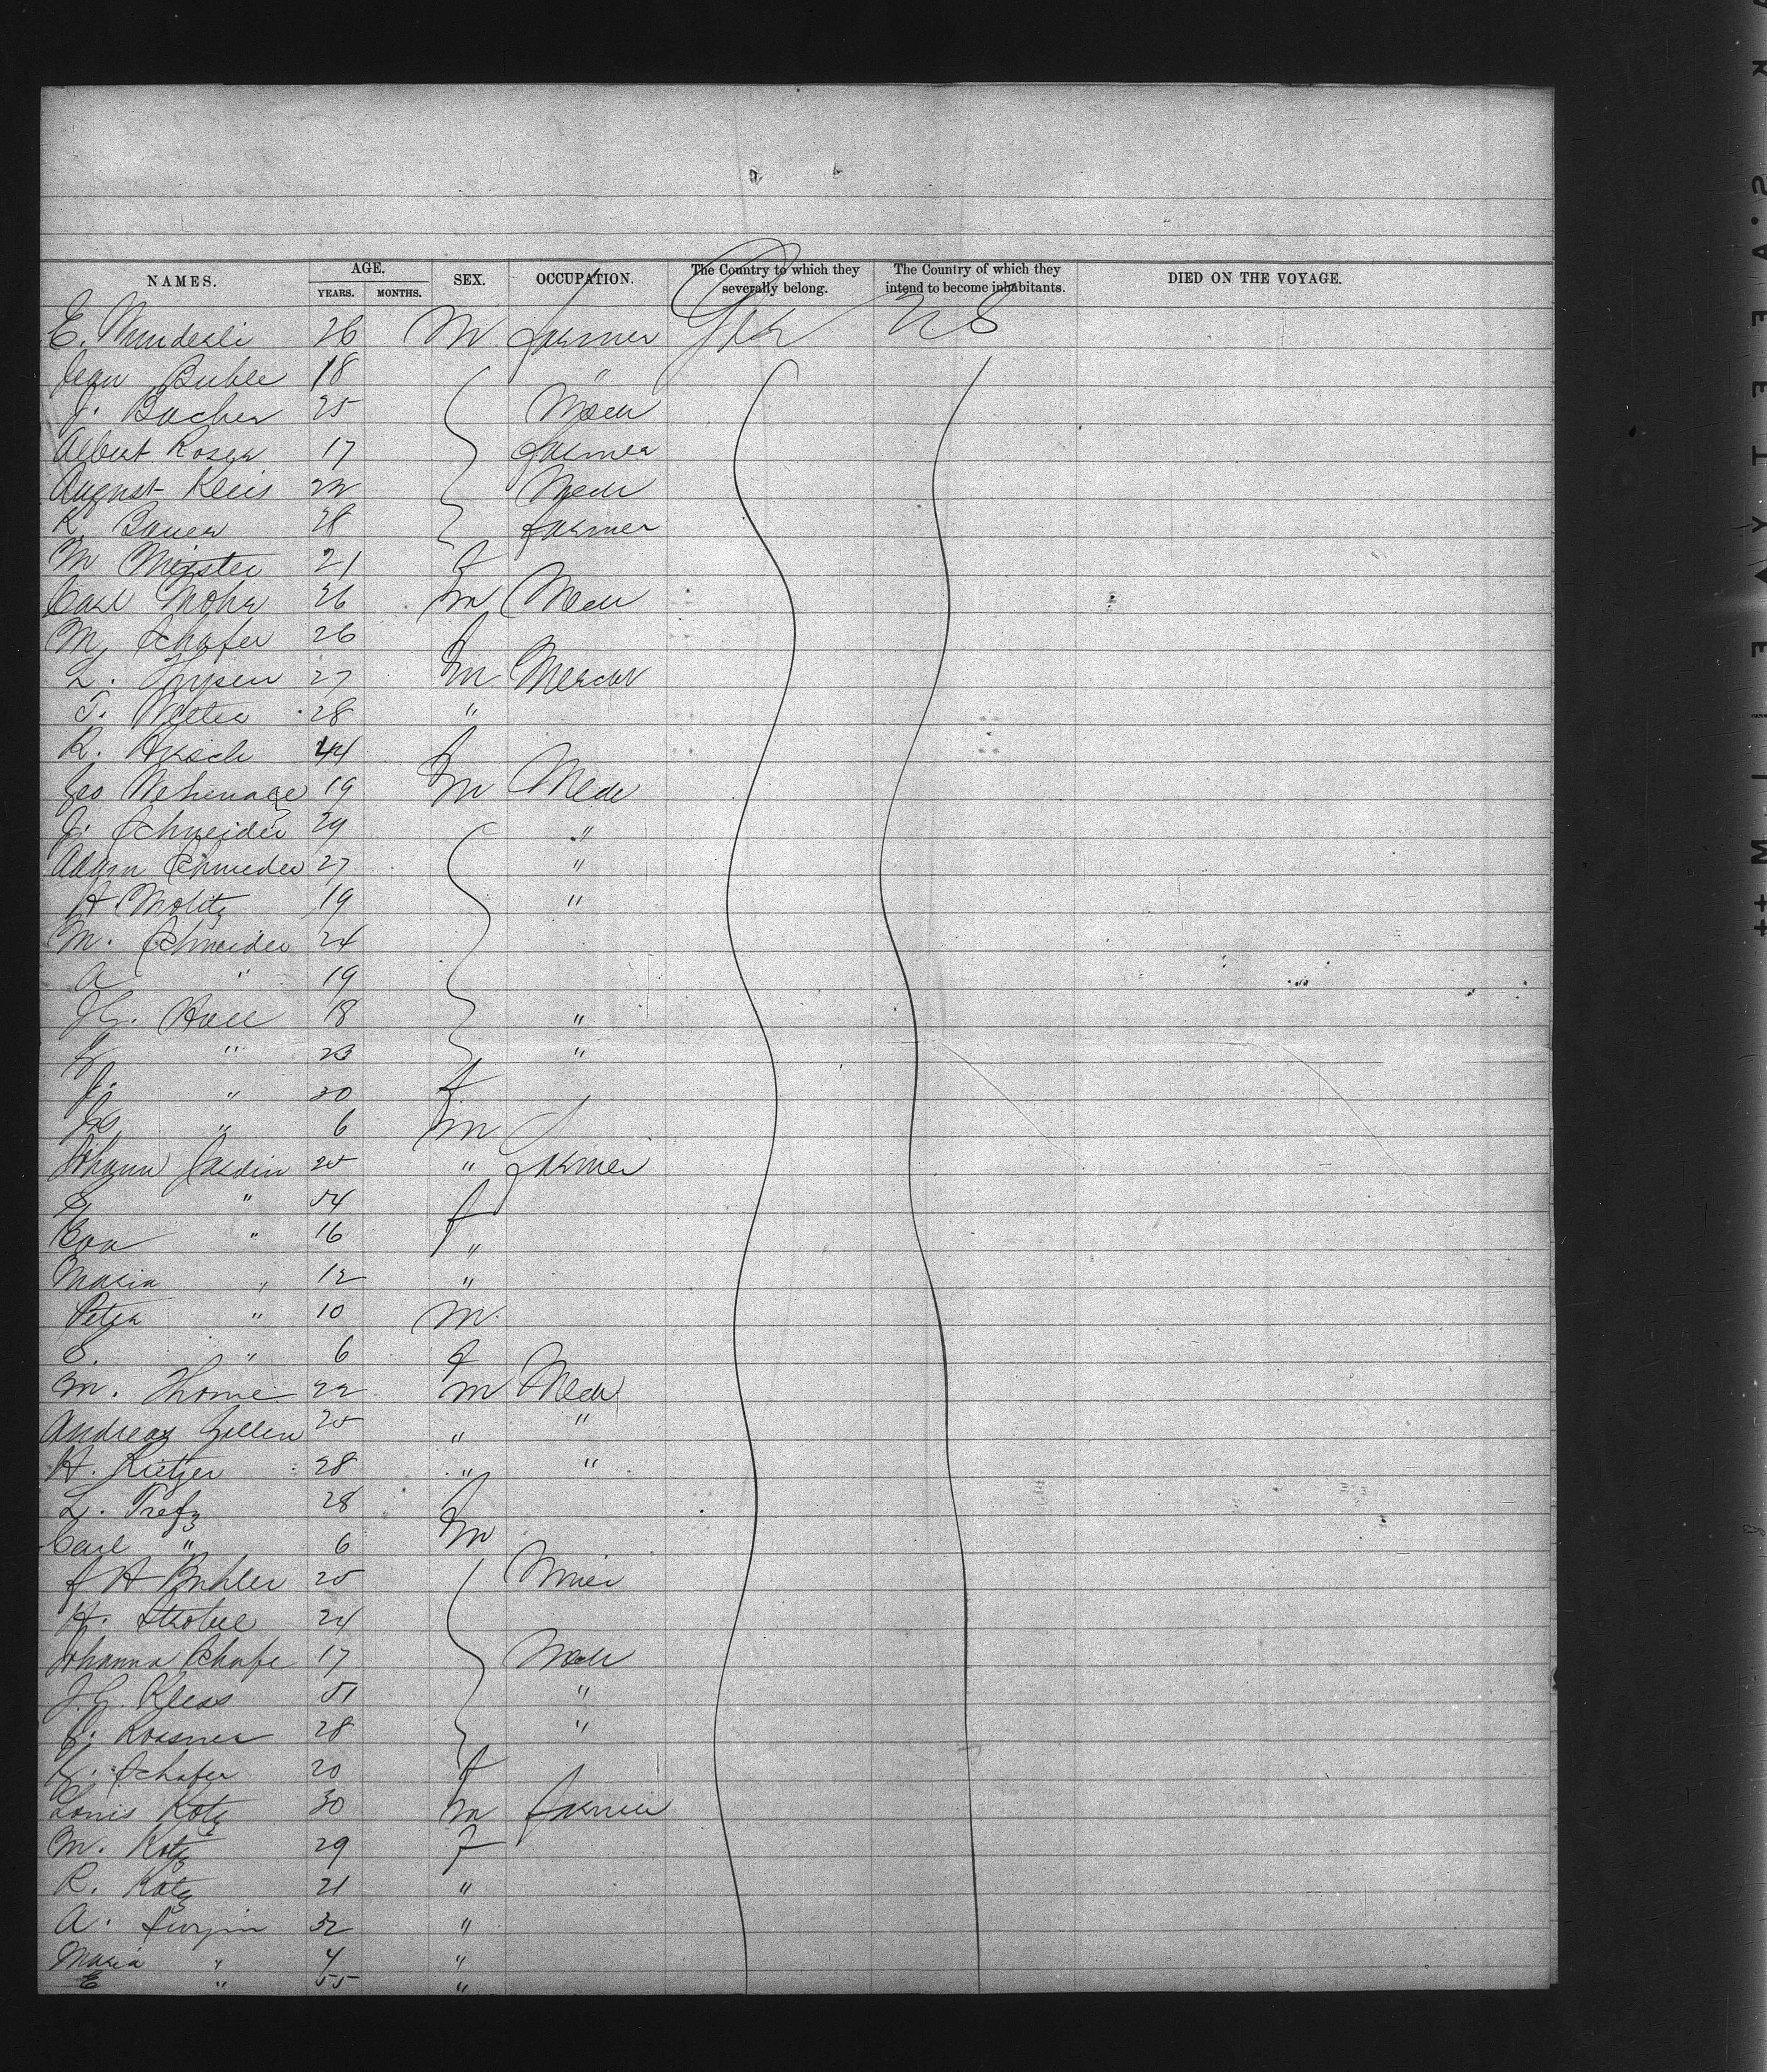 NAMES. AGE. YEARS. MONTHS. SEX. OCCUPATION. The Country to which they severally belong. The Country of which they intend to become inhabitants. DIED ON THE VOYAGE.
E. 26 M farmer Ger U.S
Jean Buhle 18 "
J. Bacher 25 Mech
Albert Roser 17 farmer
August Kleis 22 Mech
K. Bauer 28 farmer
M 21 f
Carl Mohr 26 m Mech
M. Schafer 26 f
L. 27 m
T. 28 "
R. Hirsch 44 f
Geo 19 m Mech
J. Schneider 29 "
Adam Schneider 27 "
H. 19 "
M. Schneider 24
A " 19
J G. Hall 18 "
" 23 "
J. " 30 f
" 6 m
Johann Jardin 25 " farmer
S " 54 f
Eva " 16 "
Maria " 12 "
Peter " 10 m.
S. " 6 f
M. Thome 22 m Mech
Andreas 25 " "
H. 28 " "
L. Trefz 28 f
Carl " 6 m
J H Buhler 25
H. Strobel 24
Johanna Schafe 17 Mech
J. G. Kless 51 "
J. Rossner 28 "
Schafer 20 f
Louis Kotz 30 m farmer
M. Kotz 29 F
R. Kotz 21 "
A. 32 "
Maria " 4 "
E " 55 "